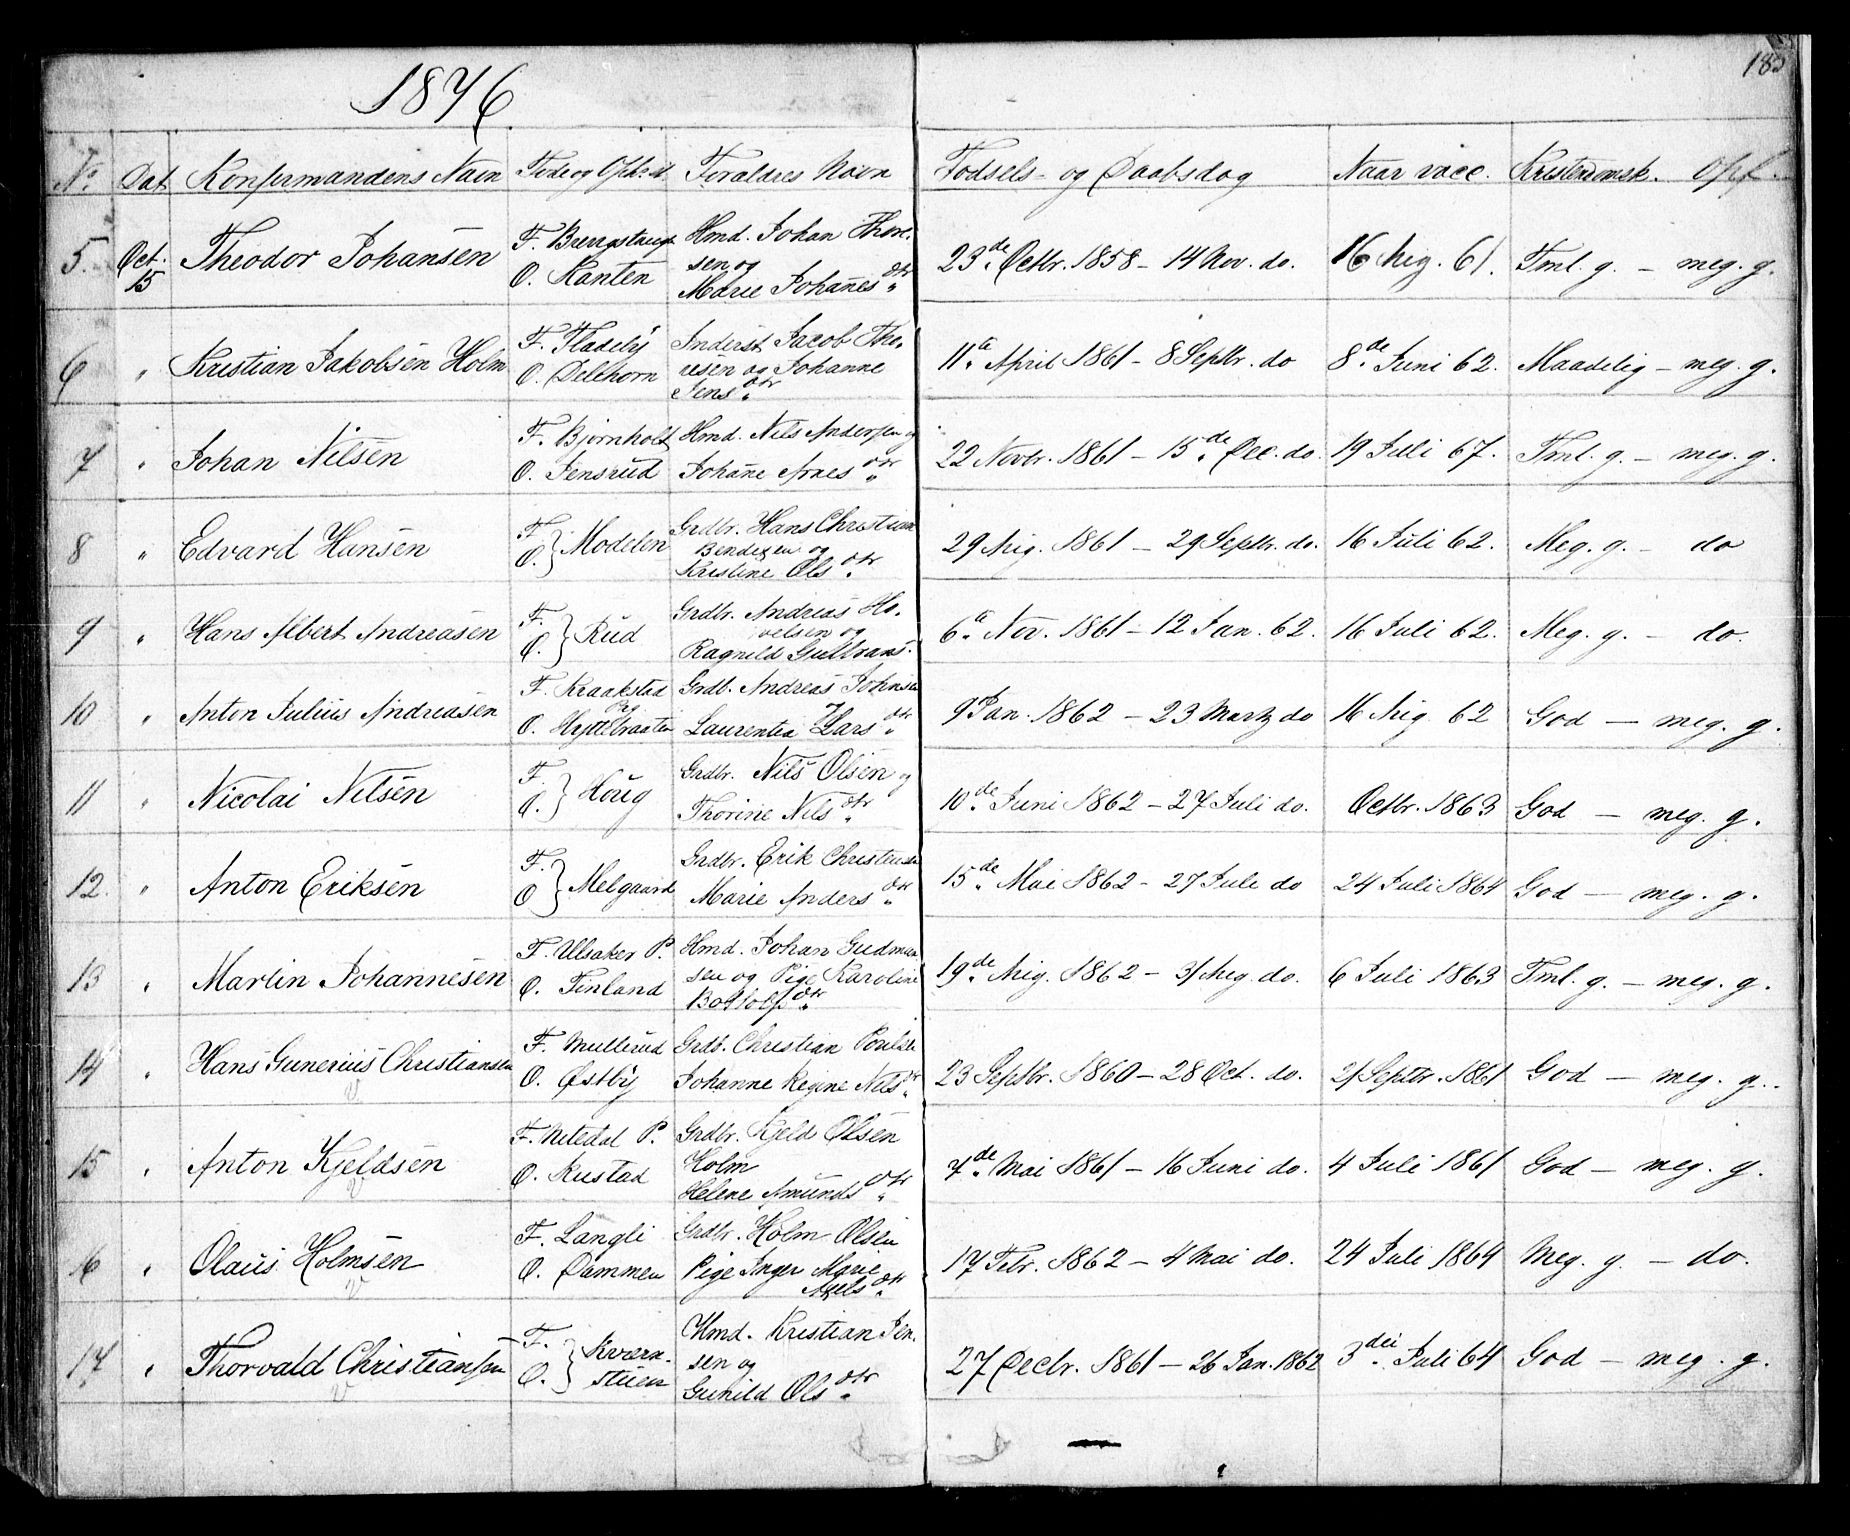 1876
185
No. Dat. Konfirmandens Navn Føde og Opf.st. Foraldres Navn Fødsels- og Daabsdag Naar vacc. Kristendomsk. Opf.
5 Oct. 15 Theodor Johansen F. O. Kanten Hmd. Johan Thor. sen og Marie Johanes Dtr 23de Octbr. 1858 – 14 Nov. do. 16 Aug. 61. Tml. g. – meg. g.
6 " Kristian Jakobsen Holm F. Fladeby O. Dellhorn Inderst Jacob Tho. resen og Johanne Jens Dtr 11te April 1861 – 8 Septbr. do 8de Juni 62. Maadelig – meg. g.
7 " Johan Nilsen F. Bjørnholt O. Jensrud Hmd. Nils Andersen og Johane Arnes Dtr 22 Novbr. 1861 – 15de Dec. do. 19 Juli 67. Tml. g. – meg. g.
8 " Edvard Hansen F. O. } Modelen Grdbr. Hans Christian Bendixen og Kristine Ols Dtr 29 Aug. 1861 – 29 Septbr. do. 16 Juli 62. Meg. g. – do
9 " Hans Albert Andreasen F. O. } Rud Grdbr. Andreas Ho. velsen og Ragnild Gulbrans. 6te Nov. 1861 – 12 Jan. 62. 16 Juli 62. Meg. g. – do.
10 " Anton Julius Andreasen F. Kraakstad Prg O. Hyttebraaten Grdb. Andreas Johnsen Laurentia Lars Dtr 9 Jan. 1862 – 23 Marts do 16 Aug. 62 God – meg. g.
11 " Nicolai Nilsen F. O. } Houg Grdbr. Nils Olsen og Thorine Nils Dtr 10de Juni 1862 – 27 Juli do. Octbr. 1863 God – meg. g.
12 " Anton Eriksen F. O } Melgaard Grdbr. Erik Christensen Marie Anders Dtr 15de Mai 1862 – 27 Juli do 24 Juli 1864 God – meg. g.
13 " Martin Johannesen F. Ulsaker P. O. Finland Hmd. Johan Gudman sen og Pige Karoline Botlolf Dtr 19de Aug. 1862 – 31 Aug. do. 6 Juli 1863 Tml. g. – meg. g.
14 " Hans Gunerius Christiansen F. Mullerud O. Østby Grdb. Christian Poulse Johanne Regine Nils Dtr 23 Septbr. 1860 – 28 Oct. do. 21 Septbr. 1861 God – meg. g.
15 " Anton Kjeldsen F. Nitedal P. O. Rustad Grdbr. Kjeld Olsen Holm Helene Amunds Dtr 7de Mai 1861 – 16 Juni do. 4 Juli 1861 God – meg. g.
16 " Olaus Holmsen F. Langli O. Dammen Grdbr. Holm Olsen Pige Inger Marie Axels Dtr 17 Febr. 1862 – 4 Mai do. 24 Juli 1864 Meg. g. – do.
17 " Thorvald Christiansen F. O. } Kværn- stuen Hmd. Kristian Jen. sen og Gunild Ols Dtr 27 Decbr. 1861 – 26 Jan. 1862 3dei Juli 64 God – meg. g.